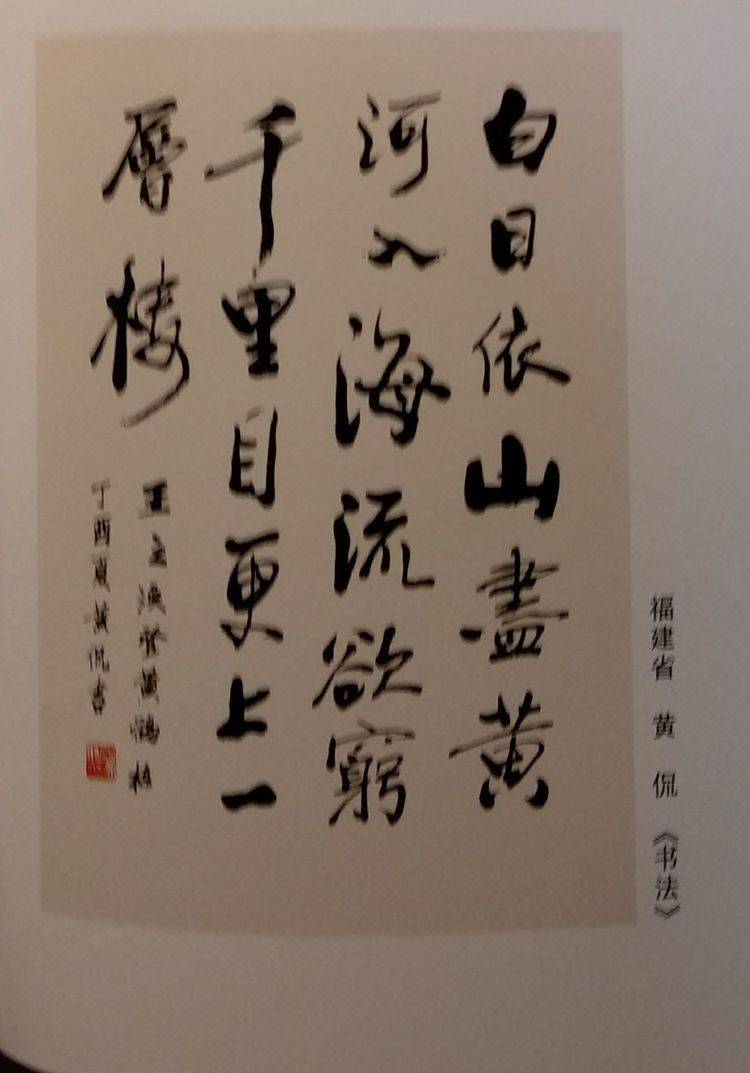 白日依山盡黄
河入海流欲窮
千里目更上一
層樓
王之涣登黄鶴楼
丁酉夏黄侃書
福建省 黄 侃 《书法》